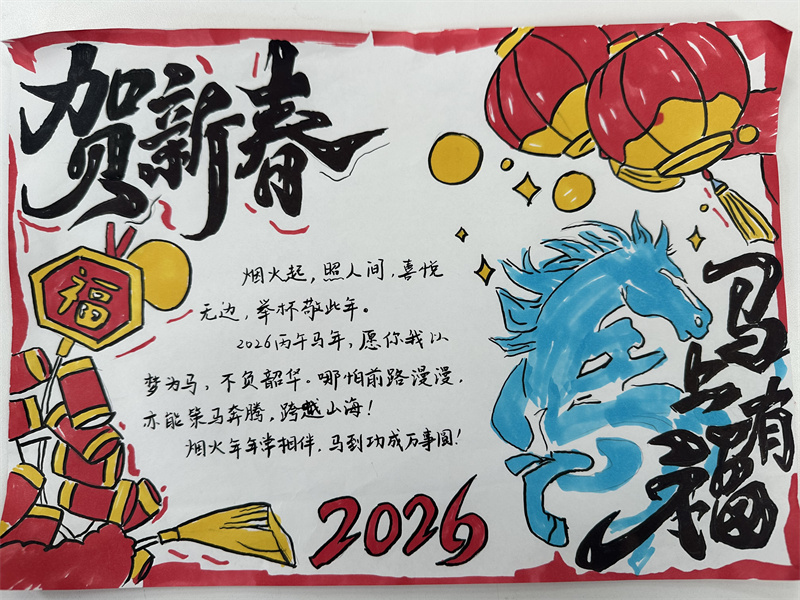 贺新春
福
烟火起,照人间,喜悦
无边,举杯敬此年。
2026丙午马年,愿你我以
梦为马,不负韶华。哪怕前路漫漫,
亦能策马奔腾,跨越山海!
烟火年年常相伴,马到功成万事圆!
2026
马上有福